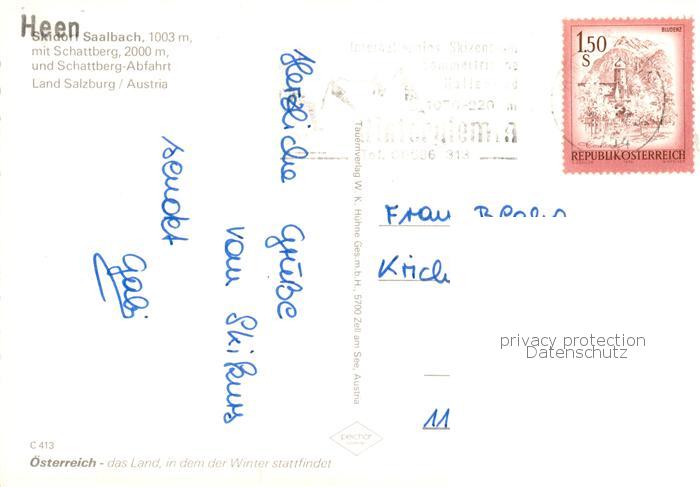 Heen
Skidorf Saalbach, 1003 m,
mit Schattberg, 2000 m,
und Schattberg-Abfahrt
Land Salzburg / Austria
Internationales Skizentrum
1070-220 m
Hinterglemm
Tel. 313
BLUDENZ
1.50
S
REPUBLIK ÖSTERREICH
Herzliche Grüße
vom Skikurs
sendet
Gabi
Tauernverlag W. K. Hühne Ges.m.b.H., 5700 Zell am See, Austria
Frau
11
privacy protection
Datenschutz
C 413
Österreich - das Land, in dem der Winter stattfindet